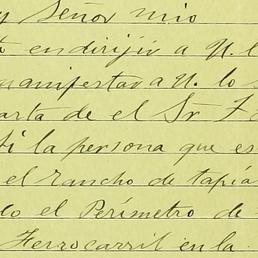 y Señor mio
en dirijir a U.
manifestar a U. lo s
arta de el Sr. F
ti la persona que es
el rancho de tapia
do el Perímetro de
Ferrocarril en la